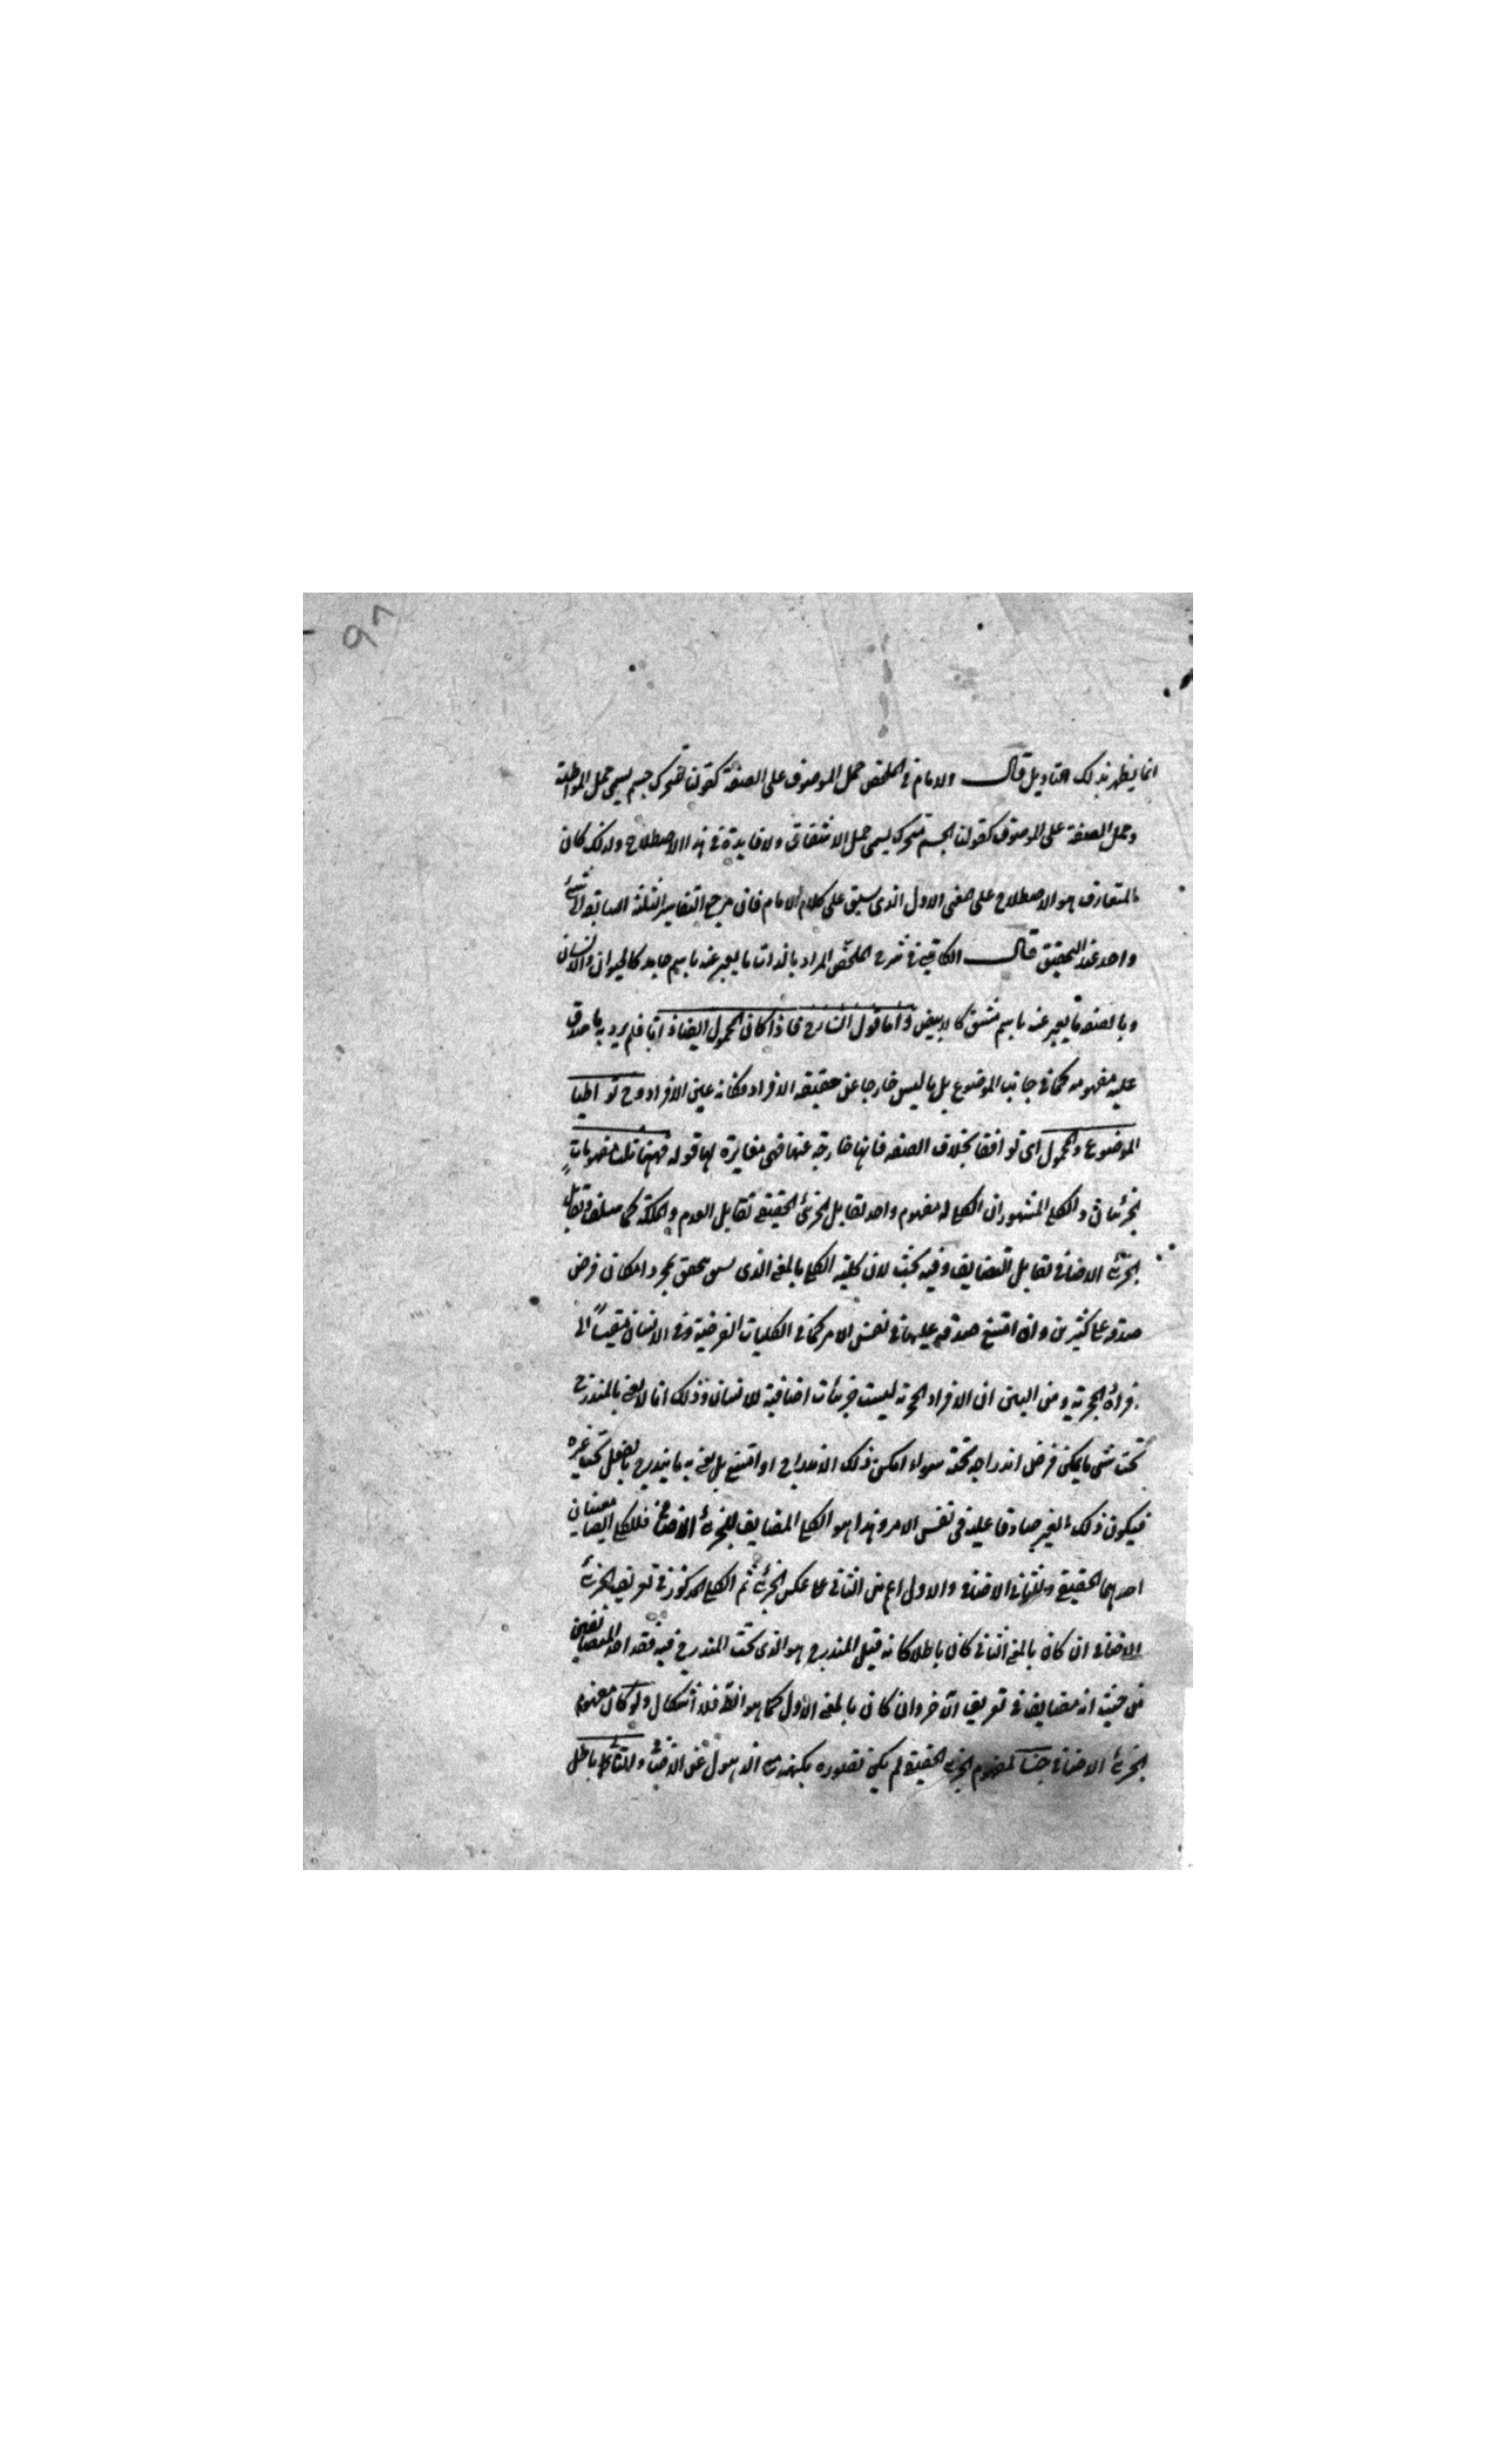 ٩٧
انما يظهر بذلك التاويل قال الامام فى الملخص حمل الموصوف على الصفة كقولنا المتحرك جسم يسمى حمل المواطاة
وحمل الصفة على الموصوف كقولنا الجسم متحرك يسمى حمل الاشتقاق ولا فايدة فى هذا الاصطلاح ولذلك كان
المتعارف هو الاصطلاح على معنى الاول الذى سبق على كلام الامام فان مرجع التفاسير الثلثة السابقة الى شئ
واحد عند التحقيق قال الكاتبى فى شرح الملخص المراد بالذات ما يعبر عنه باسم جامد كالحيوان والانسان
وبالصفة ما يعبر عنه باسم مشتق كالابيض واما قول الشارح فاذا كان المحمول ايضا ذاتا فلم يرد به ما صدق
عليه مفهومه كما فى جانب الموضوع بل ما ليس خارجا عن حقيقة الافراد فكانه عين الافراد وح تواطيا
الموضوع والمحمول اى توافقا بخلاف الصفة فانها خارجة عنها فهى مغايرة لها قوله فههنا ثلث مفهومات
جزئيان والكلى المشهور ان الكلى له مفهوم واحد تقابل الجزئى الحقيقى تقابل العدم والملكة كما سلف وتقابل
الجزئى الاضافى تقابل التضايف وفيه بحث لان كلية الكلى بالمعنى الذى سبق يتحقق بمجرد امكان فرض
صدقه على كثيرين وان امتنع صدقه عليها فى نفس الامر كما فى الكليات الفرضية وفى الانسان مقيسا الى
افراده الحجرية ومن البين ان الافراد الحجرية ليست جزئيات اضافية للانسان وذلك انا لا نعنى بالمندرج
تحت شى ما يمكن فرض اندراجه تحته سواء امكن ذلك الاندراج او امتنع بل نعنى به ما يندرج بالفعل تحت غيره
فيكون ذلك الغير صادقا عليه فى نفس الامر وهذا هو الكلى المضايف للجزئى الاضافى فللكلى ايضا معنيان
احدهما الحقيقى والثانى الاضافى والاول اعم من الثانى على عكس الجزئى ثم الكلى المذكور فى تعريف الجزئى
الاضافى ان كان بالمعنى الثانى كان باطلا كانه قيل المندرج هو الذى تحت المندرج فيه فقد اخذ المتضايفين
من حيث انه مضايف فى تعريف الآخر وان كان بالمعنى الاول كما هو الظ فلا اشكال ولو كان مفهوم
الجزئى الاضافى جنسا لمفهوم الجزئى الحقيقى لم يكن تصوره بكنهه مع الذهول عن الاضافى والتالى باطل